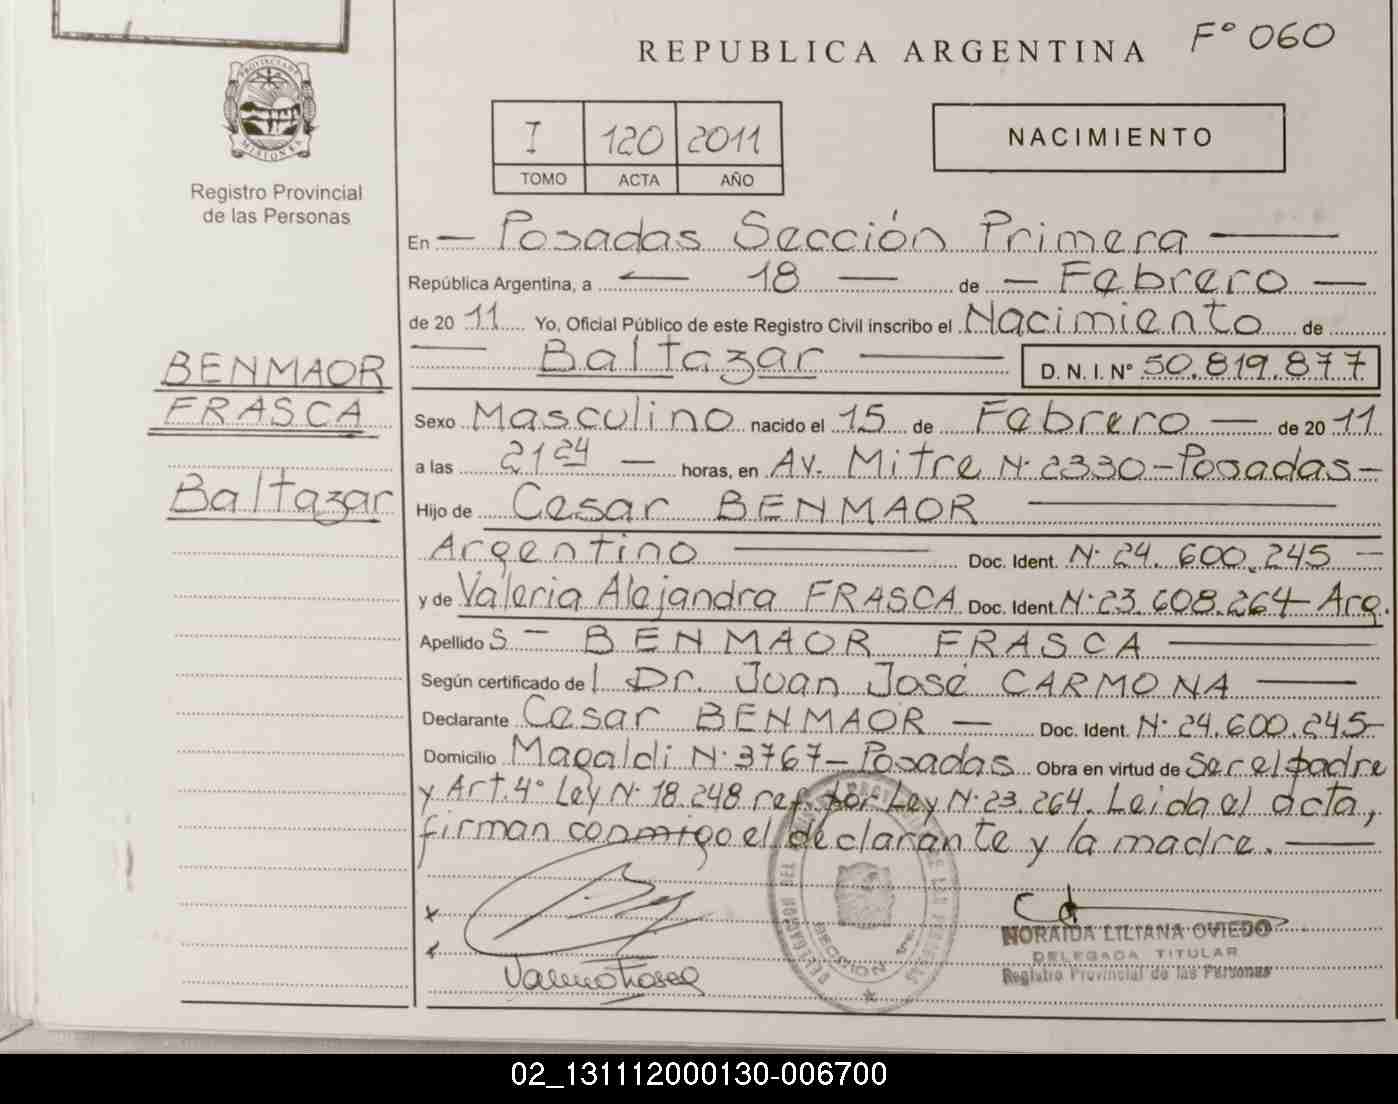 F° 060
REPUBLICA ARGENTINA
PROVINCIA DE MISIONES
Registro Provincial
de las Personas
I 120 2011
TOMO ACTA AÑO
NACIMIENTO
En — Posadas Sección Primera —
República Argentina, a — 18 — de — Febrero —
de 20 11 Yo, Oficial Público de este Registro Civil inscribo el Nacimiento de
— Baltazar — D. N. I. N° 50.819.877
BENMAOR
FRASCA
Baltazar
Sexo Masculino nacido el 15 de Febrero — de 20 11
a las 21 24 — horas, en Av. Mitre N° 2330 - Posadas -
Hijo de Cesar BENMAOR —
Argentino — Doc. Ident. N° 24.600.245 —
y de Valeria Alejandra FRASCA Doc. Ident. N° 23.608.264 - Arg.
Apellido S — BENMAOR FRASCA —
Según certificado de l Dr. Juan José CARMONA —
Declarante Cesar BENMAOR — Doc. Ident. N° 24.600.245 -
Domicilio Magaldi N° 3767 - Posadas Obra en virtud de Ser el padre
y Art. 4° Ley N° 18.248 ref. por Ley N° 23.264. Leida el acta,
firman conmigo el declarante y la madre. —
x
NORAIDA LILIANA OVIEDO
DELEGADA TITULAR
Registro Provincial de las Personas
SECCION 1ra
02_131112000130-006700